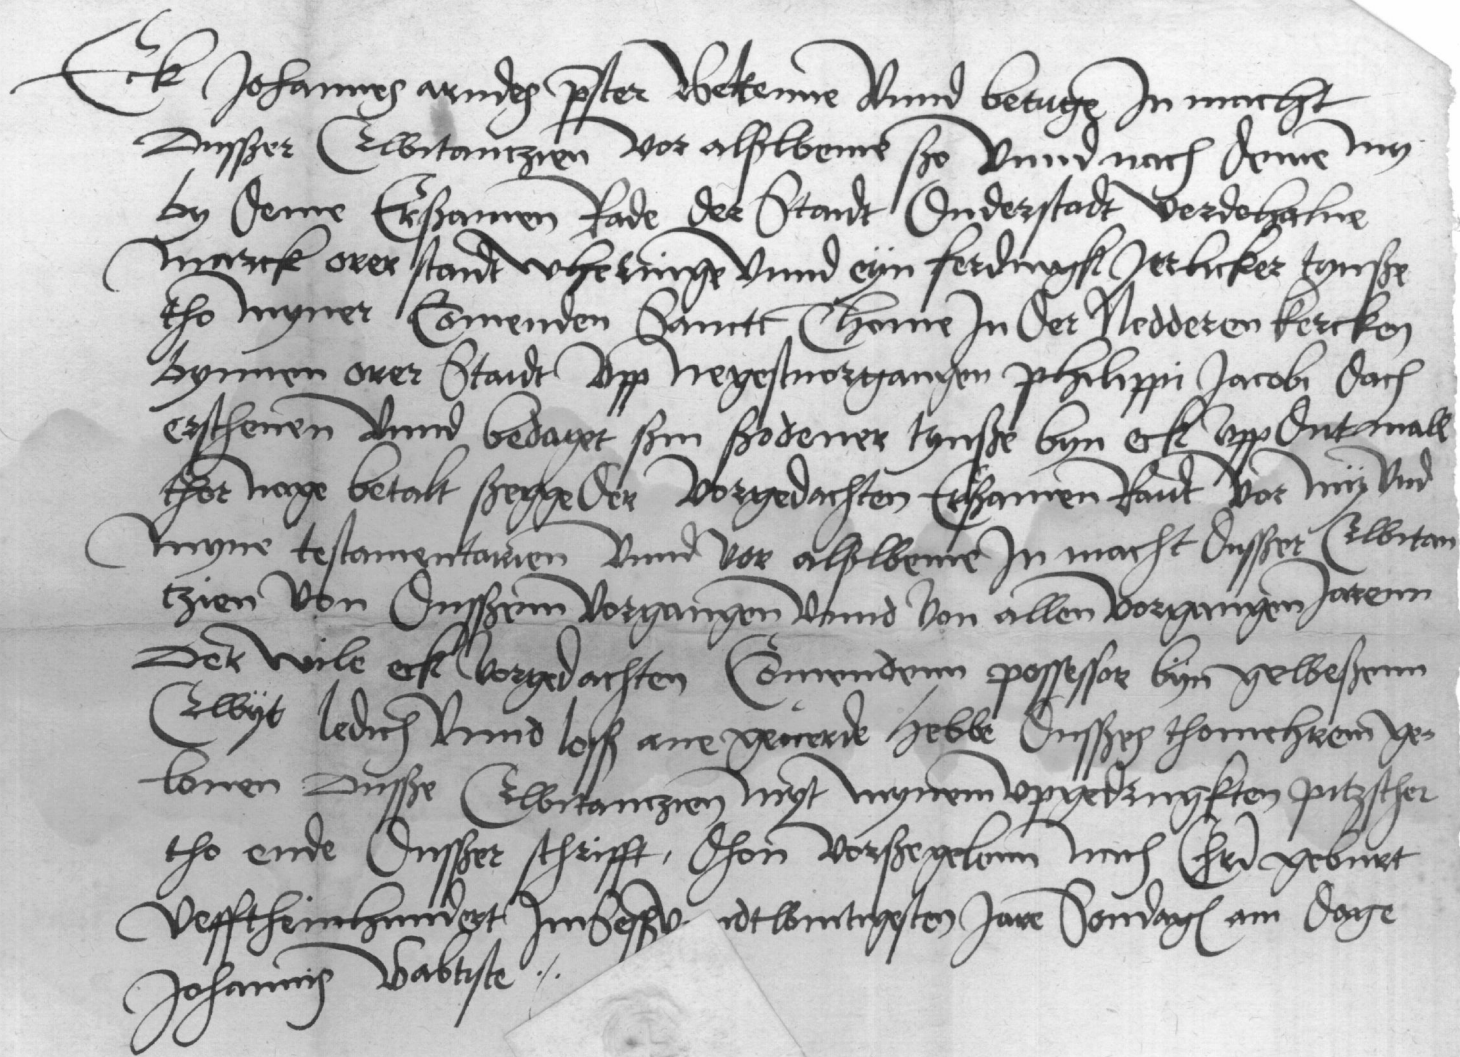 Eck Johannes arndes pster Bekenne Vnnd betuge In macht
Dusser Qwitanczien vor alsßweme so Vnnd nach deme my
by deme Erßamen Rade der Stadt Duderstadt Verdehalue
marck orer stadt wheringe Vnnd eyn ferdingk Jerlicker tynße
tho myner Comenden Sancti Thome In der Nedderen kercken
bynnen orer Stadt Vpp negestuorgangen philippi Jacobi dach
erschenen Vnnd bedaget sin ßodener tynße byn eck Vpp dut mall
thor noge betalt ßegge der Vorgedachten Erßamen Radt Vor mij Vnd
myne testamentarien Vnnd Vor alsßweme In macht dusser Qwitan
tzien Von dussem Vorgangen Vnnd Von allen Vorgangen Jarenn
Der wile eck Vorgedachten Comendenn possessor byn geweßenn
Qwyt ledich Vnnd loß ane geuerde hebbe dusses thomehrem ge-
louen Dusse Qwitanczien myt mynem Vpgedrugkten pitzscher
tho ende dusser schrifft, dhon Vorßegelenn nach Chri geburt
Vefftheinhundert Im Seßv ndtwintigesten Jare Sondages am dage
Johannis Babtiste